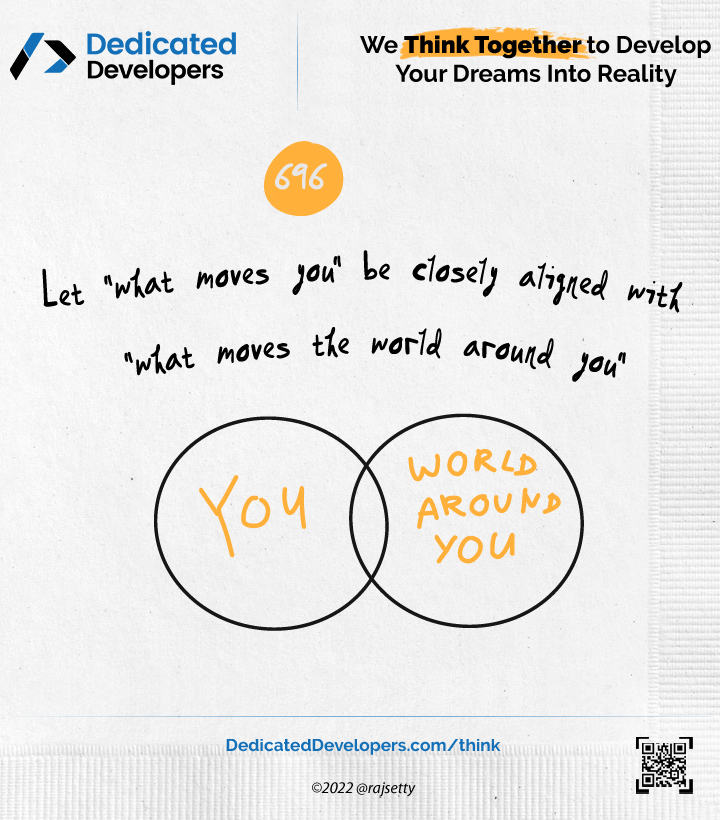 Dedicated
Developers
We Think Together to Develop
Your Dreams Into Reality
696
Let "what moves you" be closely aligned with
"what moves the world around you"
YOU
WORLD
AROUND
YOU
DedicatedDevelopers.com/think
©2022 @rajsetty